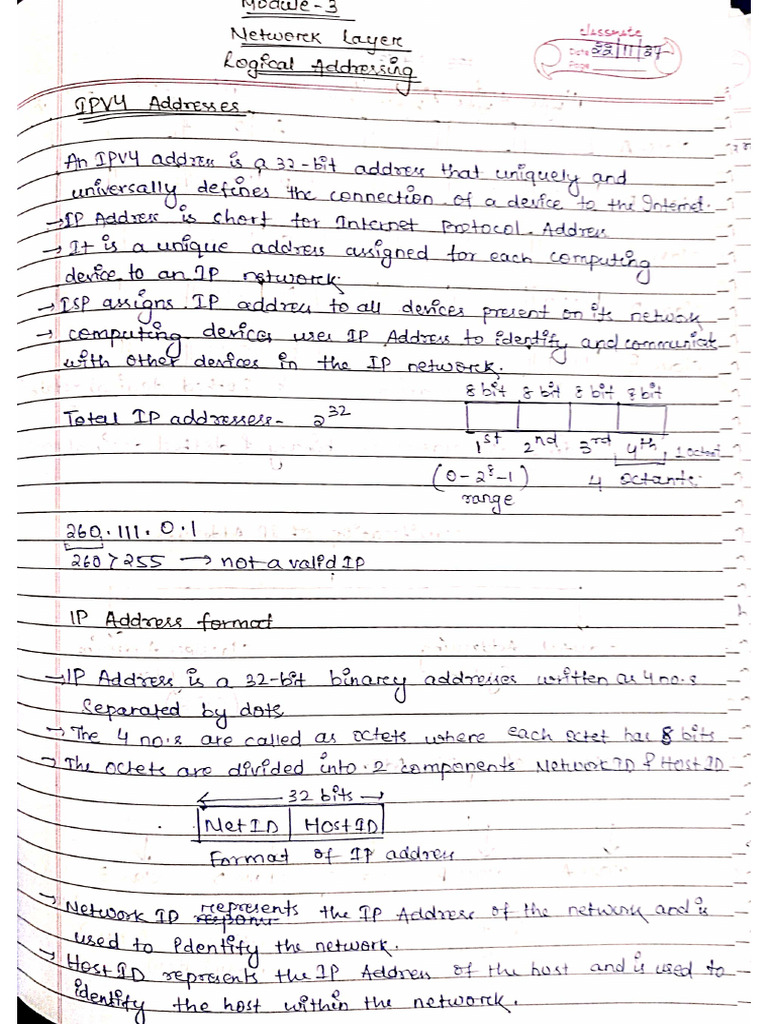 Module-3
Network Layer
Logical Addressing
classmate
Date 22/11/37
Page
IPV4 Addresses
An IPV4 address is a 32-bit address that uniquely and
universally defines the connection of a device to the Internet.
→IP Address is short for Internet Protocol Address
→ It is a unique address assigned for each computing
device to an IP network.
→ISP assigns IP address to all devices present on its network
→ computing devices uses IP Address to identify and communicate
with other devices in the IP network.
8 bit 8 bit 8 bit 8 bit
Total IP addresses- 2^32
1st 2nd 3rd 4th 1 octant
(0-2^8-1) 4 octants
range
260.111.0.1
260>255 → not a valid IP
IP Address format
→IP Address is a 32-bit binary addresses written as 4 no.s
Separated by dots
→ The 4 no.s are called as octets where each octet has 8 bits
→ The octets are divided into 2 components Network ID & Host ID
← 32 bits →
NetID Host ID
Format of IP address
→ Network ID represents the IP Address of the network and is
used to Identify the network.
→ Host ID represents the IP Address of the host and is used to
identify the host within the network.